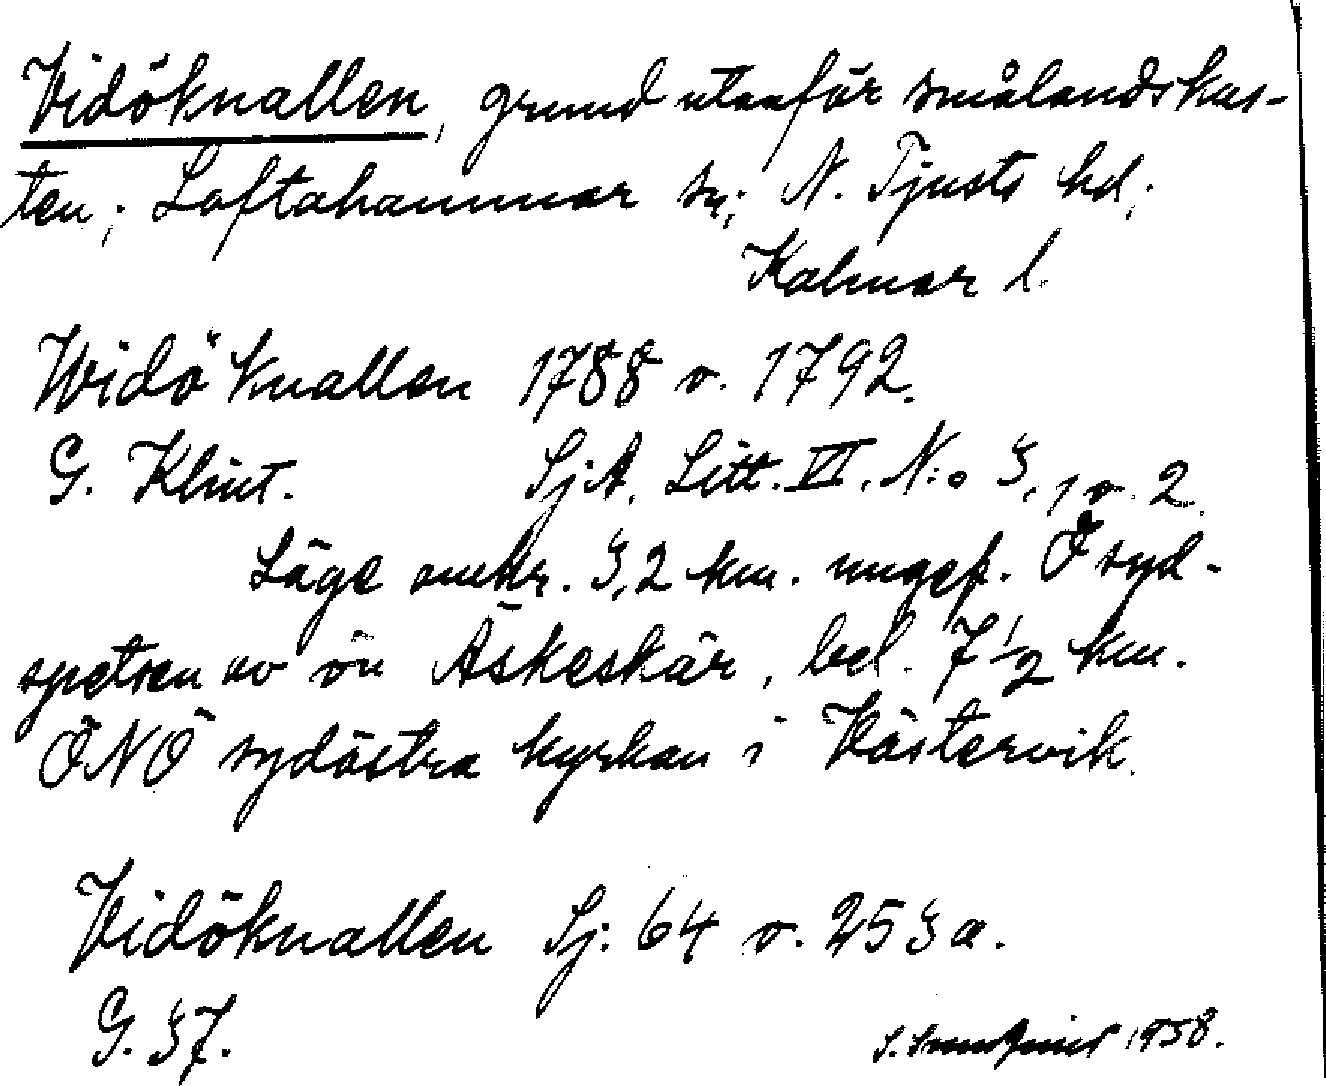 Vidöknallen, grund utanför smålandskus-
ten; Loftahammar sn; N. Tjusts hd;
Kalmar l.
Widö Knallen 1788 o. 1792.
G. Klint. SjA. Litt. VI. N:o 3, 1 o. 2.
Läge omkr. 3,2 km. ungef. Ö syd-
spetsen av ön Äskeskär, bel. 7 1/2 km.
ÖNÖ sydöstra kyrkan i Västervik.
Vidöknallen Sj: 64 o. 253 a.
G. 37.
1958.